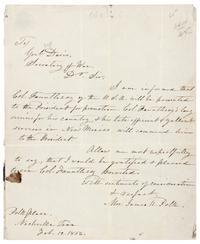 To
Gov't Davis,
Secretary of War
Dr Sir,
I am informed that
Col. Fauntleroy of the U.S.A. will be presented
to the President for promotion Col Fauntleroy's
services for his country, & his late efficient & gallant
services in New Mexico will commend him
to the President.
Allow me most respectfully
to say, that I would be gratified & pleased
to see Col. Fauntleroy promoted.
With sentiments of consideration
& respect,
Mrs. James K. Polk.
Polk place,
Nashville Tenn